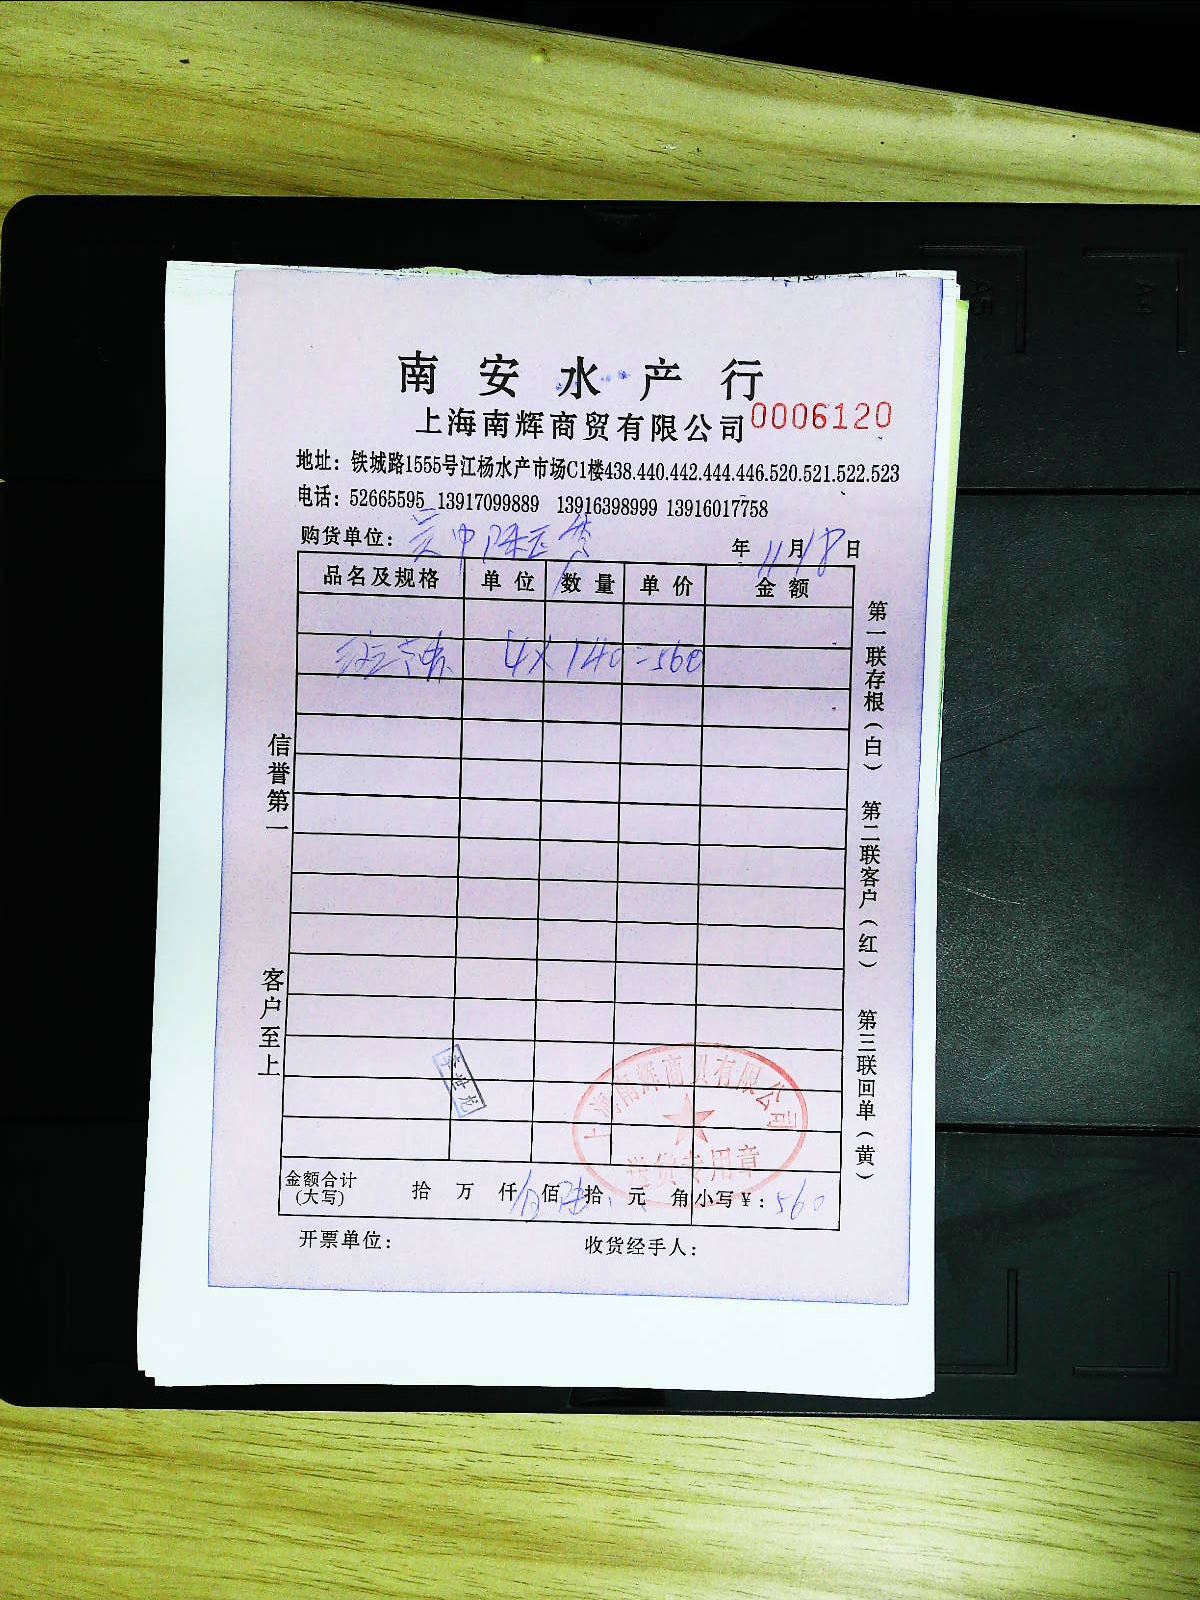 南安水产行
上海南辉商贸有限公司 0006120
地址：铁城路1555号江杨水产市场C1楼438.440.442.444.446.520.521.522.523
电话：52665595 13917099889 13916398999 13916017758
购货单位： 年 11月18日
品名及规格 单位 数量 单价 金额
4×140=560
信誉第一
客户至上
第一联存根（白）
第二联客户（红）
第三联回单（黄）
上海南辉商贸有限公司
专用章
金额合计（大写） 拾 万 仟 伍佰陆拾 元 角 小写￥：560
开票单位： 收货经手人：